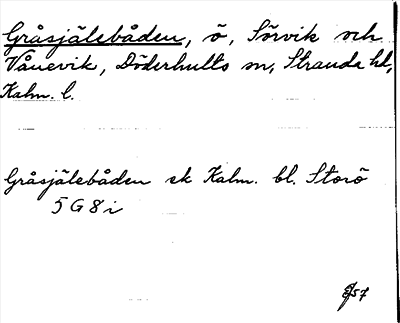 Gråsjälebåden, ö, Sörvik och
Vånevik, Döderhults sn, Stranda hd,
Kalm. l.
Gråsjälebåden ek Kalm. bl. Storö
5 G 8 i
57